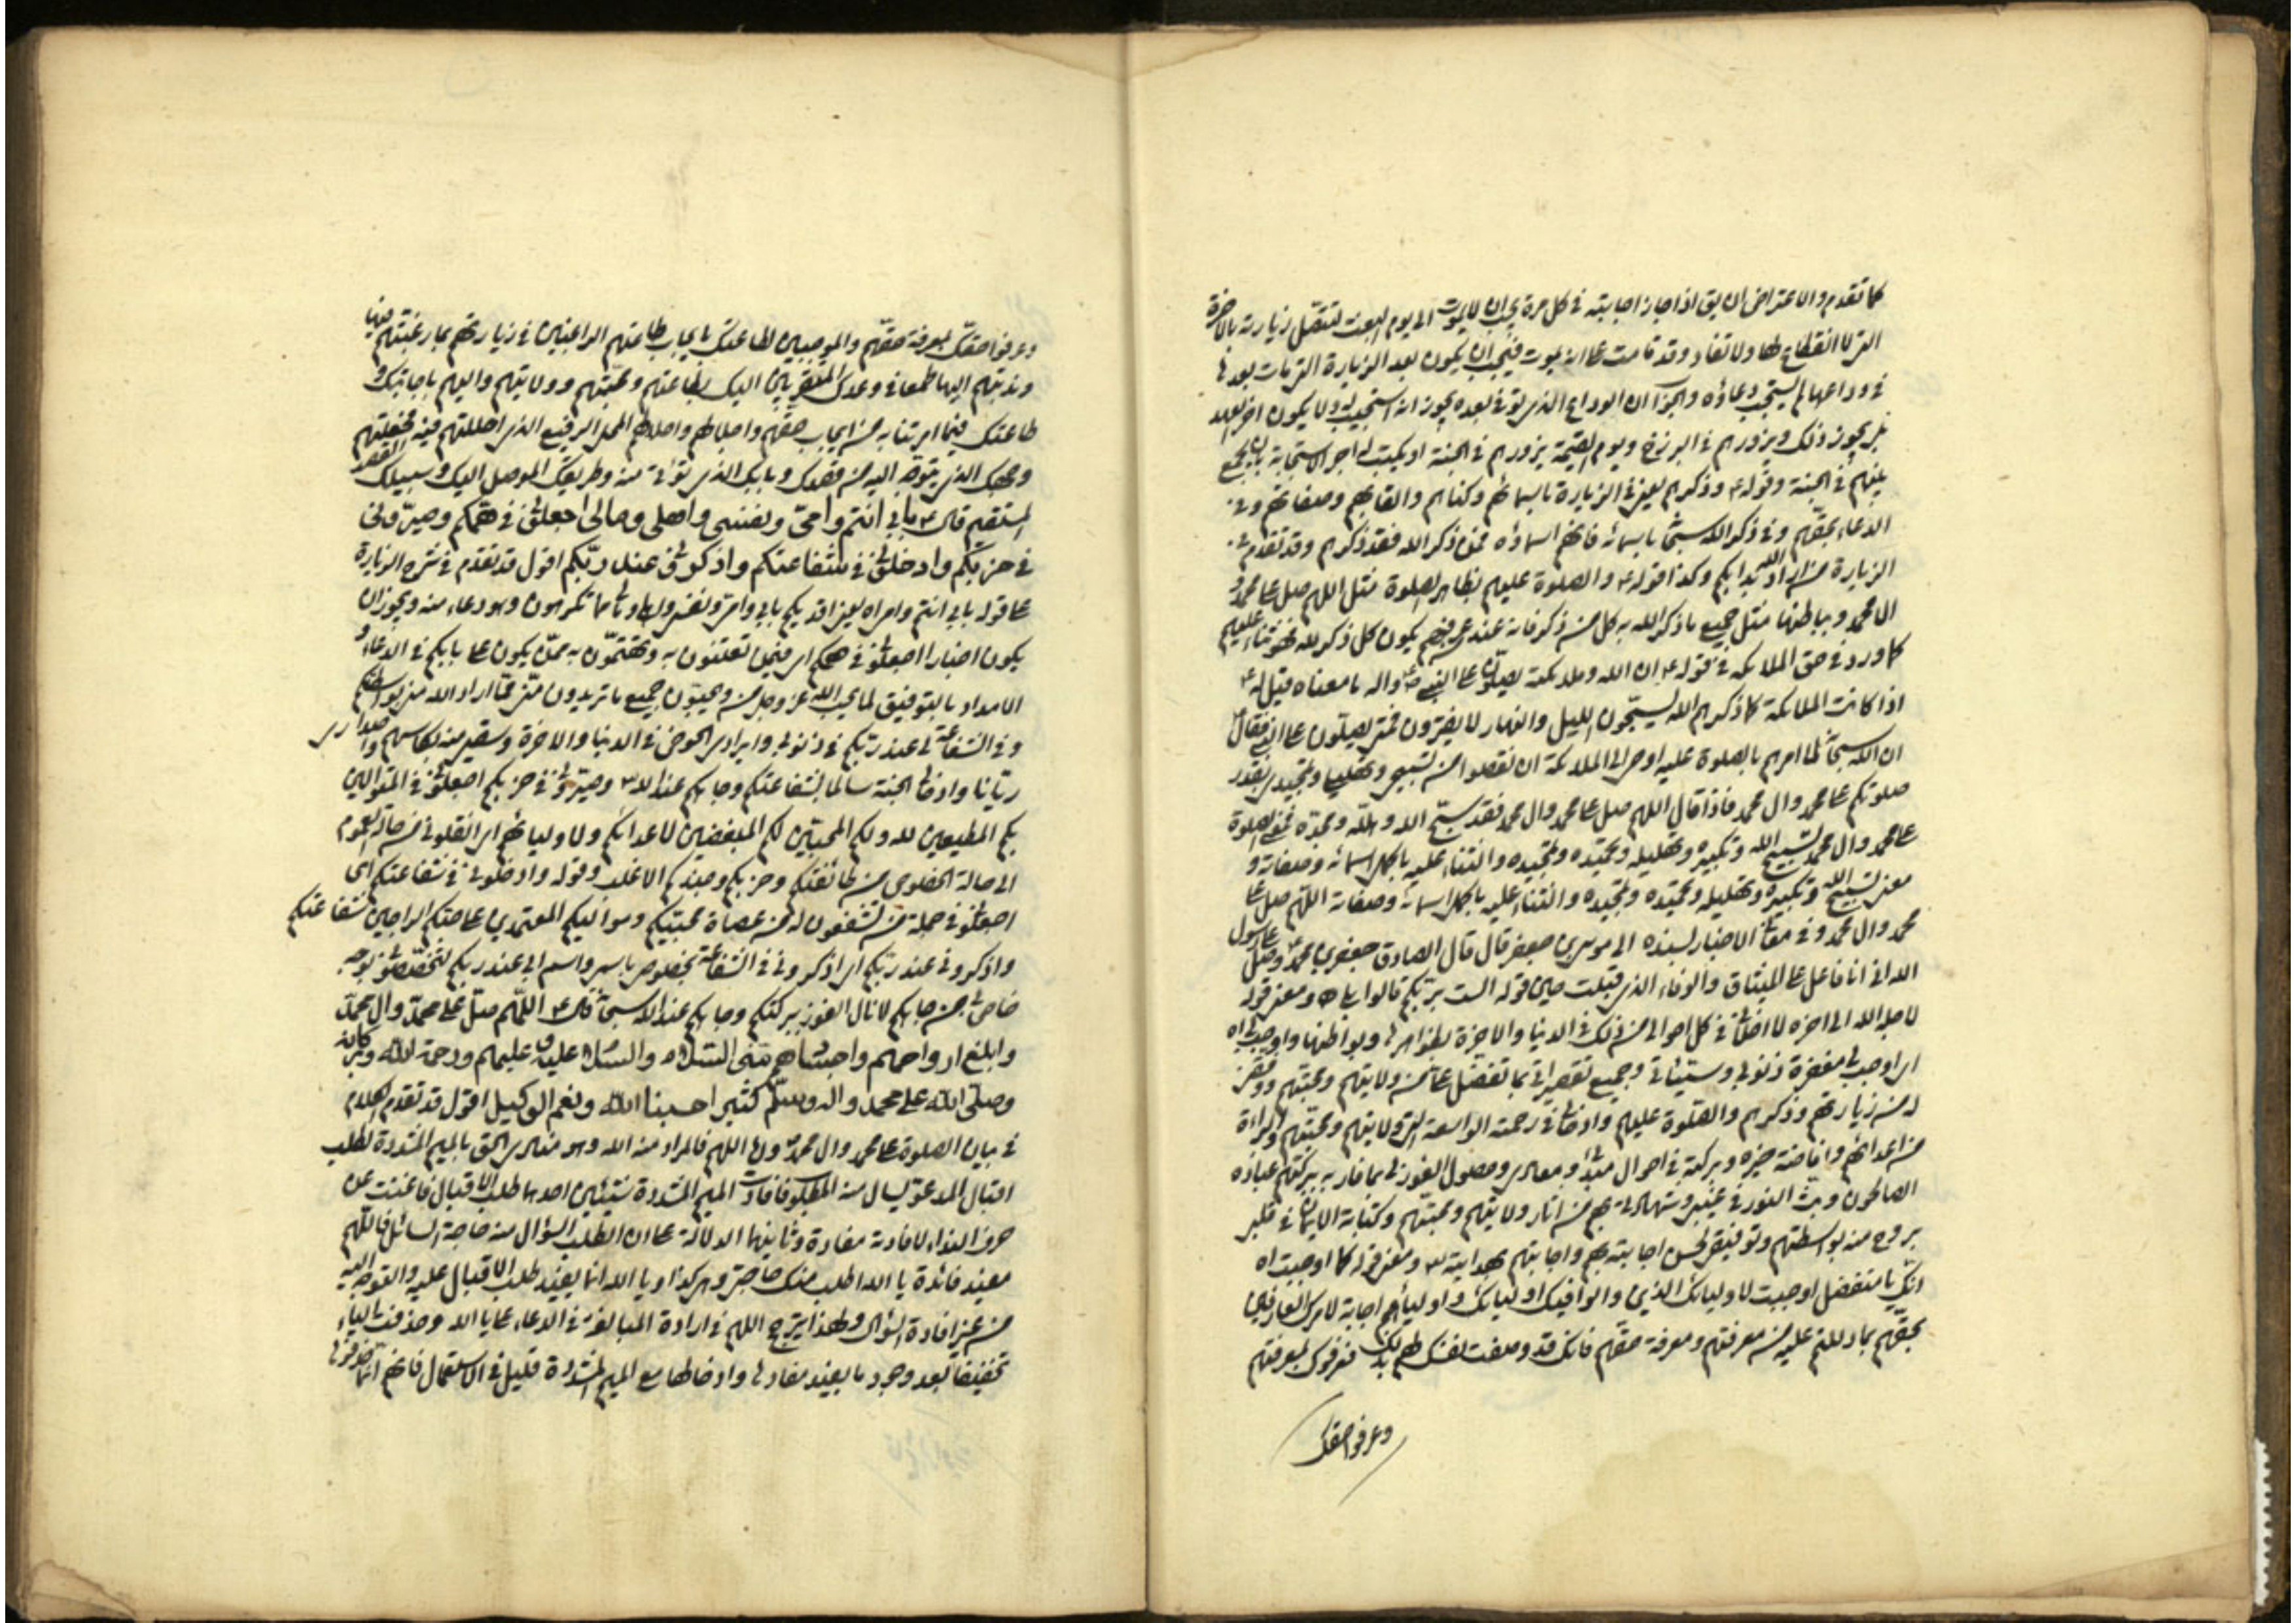 كما تقدم والاعتراض ان يق اذا جاز اجابته في كل مرة يجب ان لا يموت الى يوم البعث لتتصل زيارته بالاخرة
التي لا انقطاع لها ولا نفاد وقد قامت على انه يموت فيجب ان يكون بعد الزيارة التي مات بعدها
في وداعها لم يستجب دعاؤه والجواب ان الوداع الذي توفي بعده يجوز انه استجيب له ولا يكون اخر العهد
بل يجوز ذلك ويزورهم في البرزخ ويوم القيمة يزورهم في الجنة او يكتب له اجر الاستجابة بان يجمع
بينهم في الجنة وقوله ع وذكرهم يعني في الزيارة باسمائهم وكناهم والقابهم وصفاتهم وفي
الدعاء بحقهم وفي ذكر الله سبحا باسمائه فانهم اسماؤه فمن ذكر الله فقد ذكرهم وقد تقدم في
الزيارة من اراد الله بدا بكم وكذا قوله ع والصلوة عليهم بظاهر الصلوة مثل اللهم صل على محمد و
ال محمد وبباطنها مثل جميع ما ذكر الله به كل من ذكر فانه عند من يكون كل ذكر لله فهو ثناء عليهم
كما ورد في حق الملائكة في قوله ع ان الله وملئكته يصلون على النبي ص واله ما معناه قيل له ع
اذا كانت الملائكة كما ذكرهم الله يسبحون الليل والنهار لا يفترون فمتى يصلون على النبي فقال ع
ان الله سبحا لما امرهم بالصلوة عليه اوحى الى الملائكة ان نقصوا من تسبيحي وتهليلي وتمجيدي بقدر
صلوتكم على محمد وال محمد فاذا قال اللهم صل على محمد وال محمد فقد سبح الله وهلله ومجده فمعنى الصلوة
على محمد وال محمد تسبيح الله وتكبيره وتهليله وتحميده وتمجيده والثناء عليه باكمل اسمائه وصفاته و
معنى تسبيح الله وتكبيره وتهليله وتحميده وتمجيده والثناء عليه باكمل اسمائه وصفاته اللهم صل على
محمد وال محمد وفي معاني الاخبار بسنده الى موسى بن جعفر قال قال الصادق جعفر بن محمد ع من صلى على رسول
الله اني انا فاعل على الميثاق والوفاء الذي قبلت حين قوله الست بربكم قالوا بلى ه ومعنى قوله
لاجله الى اخره في كل احوالي من ذلك في الدنيا والاخرة بظواهرها وبواطنها واوجب لي اه
اي اوجب لي مغفرة ذنوبي وسيئاتي وجميع تقصيراتي بما تفضل علي من ولايتهم ومحبتهم ووفقني
له من زيارتهم وذكرهم والصلوة عليهم وادخلني في رحمته الواسعة التي ولايتهم ومحبتهم والبراءة
من اعدائهم وافاضة خيره وبركته في احوال مبدئي ومعادي وحصول الفوز لي بما فاز به ببركتهم عباده
الصالحون وبث النور في غيبي وشهادتي بهم من اثار ولايتهم ومحبتهم وكتابة الايمان في قلبي
بروح منه بواسطتهم وتوفيقي لحسن اجابته بهم واجابتهم بهدايته ومعنى قوله كما اوجبت اه
انك يا متفضل اوجبت لاوليائك الذين والوا فيك اولياءك واوليائهم اجابة لامرك العارفين
بحقهم بما دللتهم عليه من معرفتهم ومعرفة حقهم فانك قد وصفت نفسك لهم بذلك فعرفوك بمعرفتهم
وعرفوا حقك
وعرفوا حقك بمعرفة حقهم والموجبين لطاعتك بايجاب طاعتهم الراغبين في زيارتهم بما رغبتهم فيها
وندبتهم اليها طمعا في وعدك المتقربين اليك بطاعتهم ومحبتهم وولايتهم واليهم باجابتك و
طاعتك فيما امرتنا به من ايجاب حقهم واجلالهم واحلالهم المحل الرفيع الذي احللتهم فيه فجعلتهم
وجهك الذي يتوجه اليه من قصدك وبابك الذي تؤتى منه وطريقك الموصل اليك وسبيلك القصد
المستقيم قال ع بابي انتم وامي ونفسي واهلي ومالي اجعلوني في همكم وصيروني
في حزبكم وادخلوني في شفاعتكم واذكروني عند ربكم اقول قد تقدم في شرح الزيارة
على قوله بابي انتم وامراه يعني افديكم بابي وامي ونفسي واهلي ومالي مما تكرهون وهو دعاء منه ويجوز ان
يكون اخبارا اجعلوني في همكم اي فيمن تعتنون به وتهتمون به ممن يكون على بالكم في الدعاء و
الامداد بالتوفيق لما يحب الله عز وجل من ويحبون جميع ما تريدون مني مما اراد الله مني بواسطتكم
وفي الشفاعة لي عند ربكم في ذنوبي وايرادي الحوض في الدنيا والاخرة وسقيي منه بكاسهم
ريانا وادخال الجنة سالما بشفاعتكم وجاهكم عند الله وصيروني في حزبكم اجعلوني في المتوالين
بكم المطيعين لله ولكم المحبين لكم المبغضين لاعدائكم ولاوليائهم اي انقلوني من حالة العموم
الى حالة الخصوص من طائفتكم وحزبكم وجندكم الاغلب وقوله وادخلوني في شفاعتكم اي
اجعلوني في جملة من تشفعون له من عصاة محبيكم ومواليكم المعتمدين على محبتكم الراجين لشفاعتكم
واذكروني عند ربكم اي اذكروني في الشفاعة بخصوص باسمي واسم ابي عند ربكم لتخصصوني بوجه
خاص من جاهكم لانال الفوز ببركتكم وجاهكم عند الله سبحا قال ع اللهم صل على محمد وال محمد
وابلغ ارواحهم واجسادهم مني السلام والسلام عليه وعليهم ورحمة الله وبركاته
وصلى الله على محمد واله وسلم كثيرا حسبنا الله ونعم الوكيل اقول قد تقدم الكلام
في بيان الصلوة على محمد وال محمد واما اللهم فالمراد منه الله وهو منادى الحق بالميم المشددة لطلب
اقبال المدعو ليسال منه المطلوب فافادت الميم المشددة شيئين احدهما طلب الاقبال فاغنت عن
حرف النداء لافادته مفاده وثانيهما الدلالة على ان الطلب السؤال منه حاجة السائل فاللهم
مفيد فائدة يا الله اطلب منك حاجتي وهي كذا ويا الله انما يفيد طلب الاقبال عليه والتوجه اليه
من غير افادة السؤال ولهذا يترجح اللهم في ارادة المبالغة في الدعاء على يا الله وحذفت الياء
تخفيفا بعد وجود ما يفيد مفادها وادخالها مع الميم المشددة قليل في الاستعمال فانهم انما حذفوها